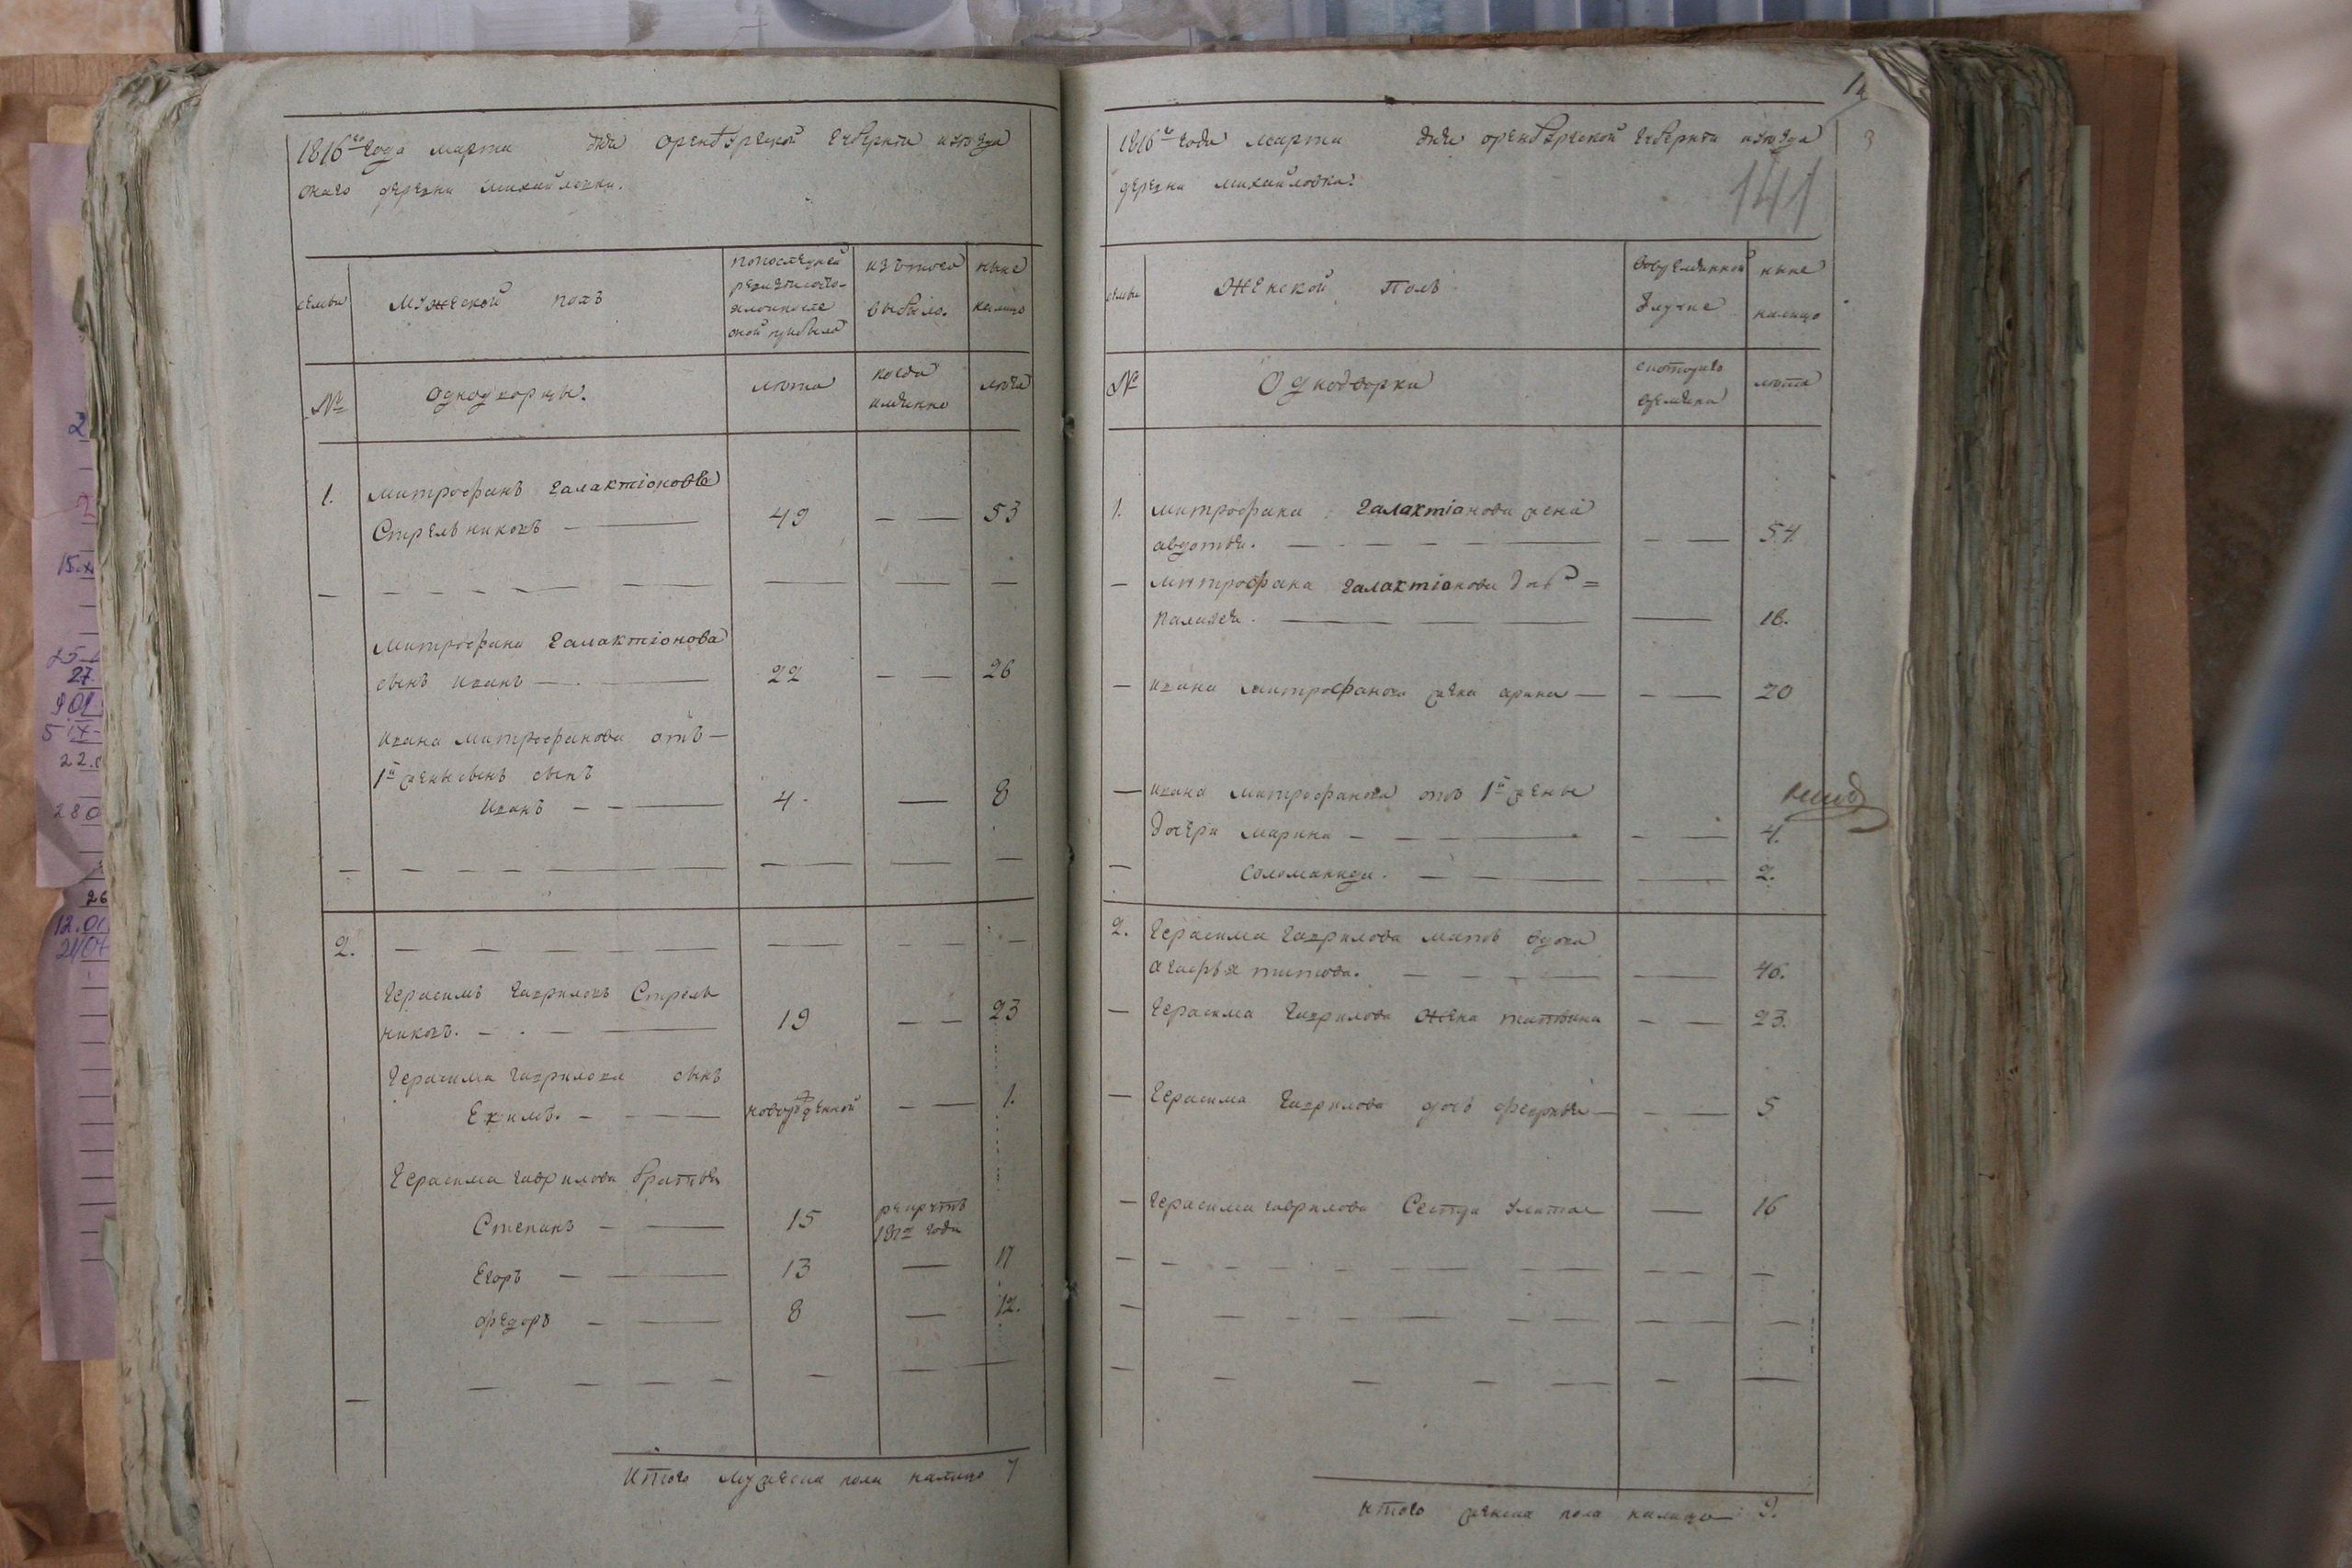 1816го года марта дня оренбургской губернии и уезда
онаго деревни михайловки.
семьи
Мужеской полъ
попоследней
ревизии состо-
яло и после
оной прибыло
изъ того
выбыло.
ныне
налицо
№
Однодворцы.
лета
когда
имянно
лета
1. митрофанъ галактионовъ
Стрельниковъ — 49 — — 53
Митрофана Галактионова
сынъ иванъ — 22 — — 26
ивана митрофанова отъ
1й жены сынъ
иванъ — 4. — 8
2.
герасимъ гавриловъ Стрель
никовъ. — 19 — — 23
герасима гаврилова сынъ
Екимъ. — новорожденной — — 1.
герасима гаврилова братья
Степанъ — 15 рекрутъ
года
Егоръ — 13 — 17
федоръ — 8 — 12.
Итого мужеска пола налицо 7
14
1816го года марта дня оренбургской губернии и уезда
деревни михайловка.
141
семьи
Женской Полъ
вовременной
отлучке
ныне
налицо
№
Однодворки
с котораго
времяни
лета
1. митрофана галактианова жена
авдотья. — — 54.
— митрофана галактианова дочь
палагея. — 18.
— ивана митрофанова жена арина — — 20
— ивана митрофанова отъ 1й жены
дочери марина — — 4.
— Соломанида. — 2.
2. герасима гаврилова мать вдова
агафья титова. — 46.
— герасима гаврилова жена татьяна — — 23.
— герасима гаврилова дочь — — 5
— герасима гаврилова Сестра улита — 16
итого женска пола налицо 9.